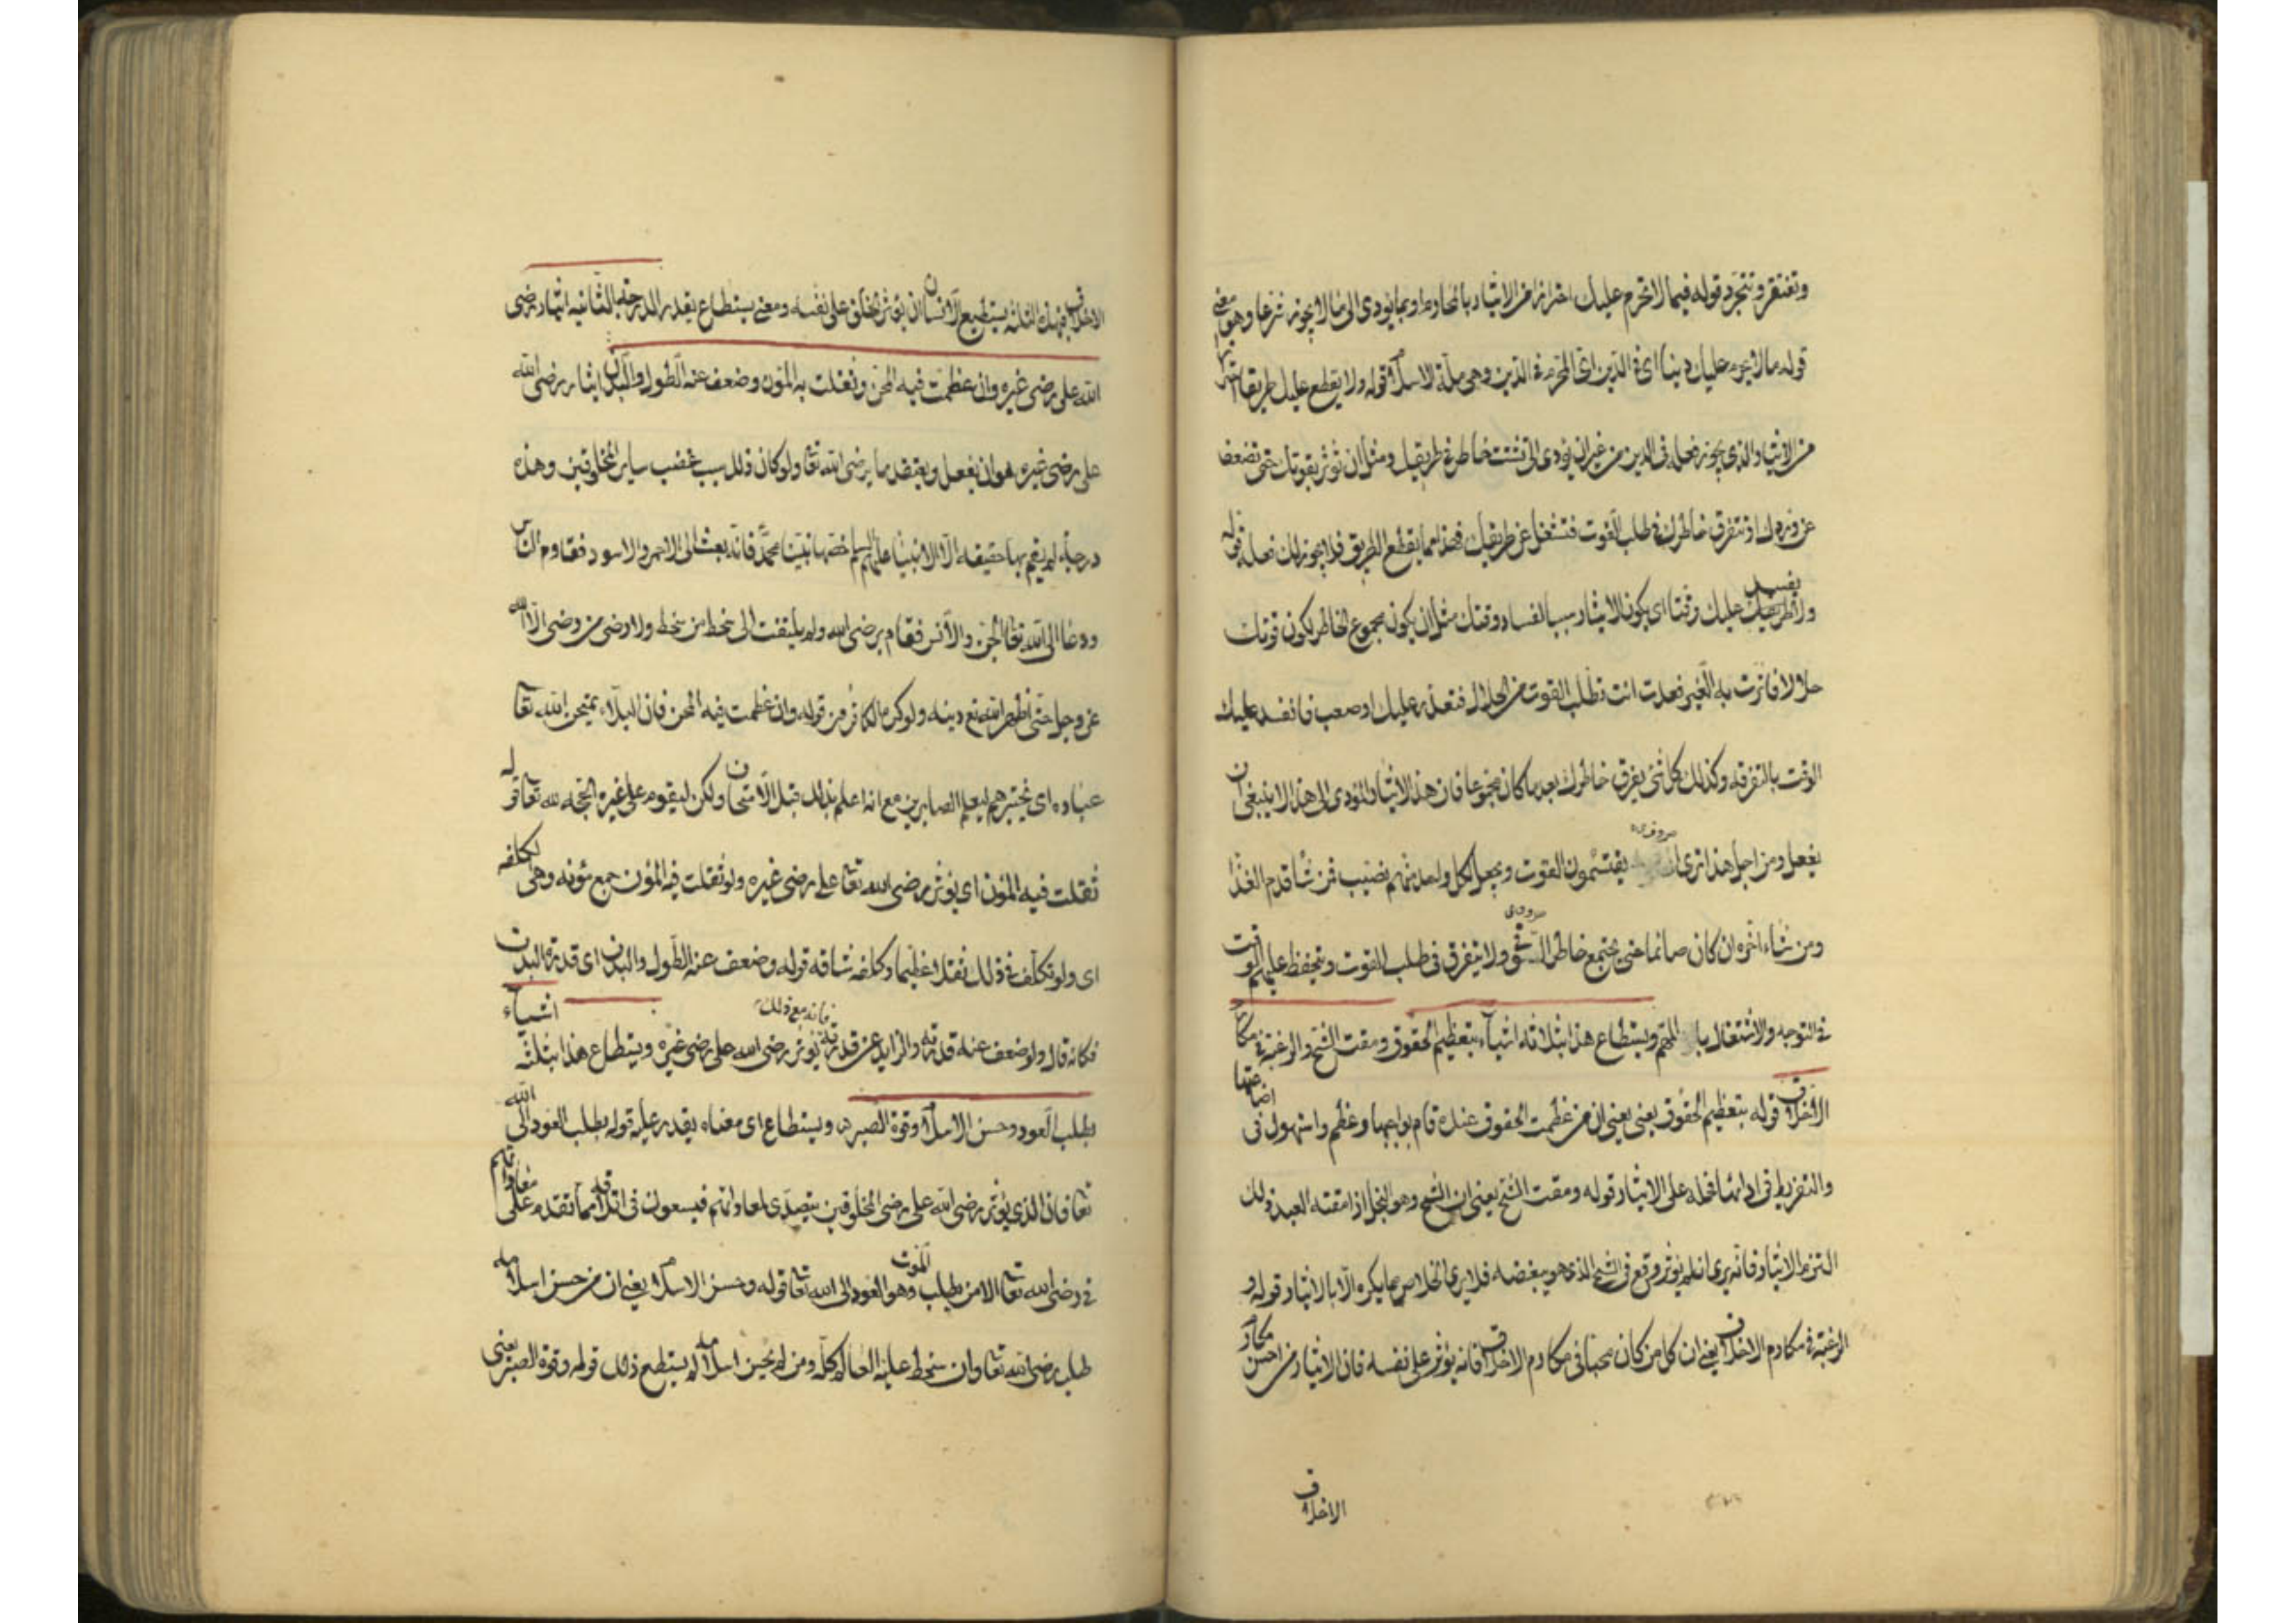 وتفتقر وتتجرد قوله فيما لا تحرم عليك احترازا من الايثار بالمحارم او بما يودى الى ما لا يجوز شرعا وهو معنى
قوله ما لا يحرم عليك دينا اى فى الدين اى المحرم فى الدين وهى ملة الاسلام قوله ولا يقطع عليك طريقا احترازا
من الايثار الذى يجوز فعله فى الدين من غير ان يودى الى تشتت خاطر فى طريقك ومثل ان توثر بقوتك حتى تضعف
عن وردك او تتفرق خاطرك فى طلب القوت فتشتغل عن طريقك فهذا مما يقطع الطريق فلا يجوز لك فعله قوله
ولا يفسد عليك وقتا اى يكون الايثار سببا لفساد وقتك مثل ان يكون مجموع الخاطر لكون قوتك
حلالا فاثرت به الغير فعدت انت تطلب القوت من الحلال فتعذر عليك او صعب فانفسد عليك
الوقت بالتفرقه وكذلك كل شئ يفرق خاطرك بعد ما كان مجموعا فان هذا الايثار المودى الى هذا لا ينبغى ان
يفعل ومن اجل هذا ترى الصوفيه يقتسمون القوت ويجعل لكل واحد منهم نصيب فمن شا قدم الغذا
ومن شاء اخره ان كان صائما حتى يجتمع خاطر الصوفى ولا يتفرق فى طلب القوت ويتحفظ عليهم الوقت
فى التوجه والاشتغال بالمهم ويستطاع هذا بثلاثه اشياء بتعظيم الحقوق ومقت الشح والرغبة فى مكارم
الاخلاق قوله بتعظيم الحقوق يعنى يعنى ان من عظمت الحقوق عنده قام بواجبها وعظم واستهول فى اضاعتها
والتفريط فى ادائها فحمله على الايثار قوله ومقت الشح يعنى ان الشح وهو البخل اذا مقته العبد فذلك
التزم الايثار فانه يرى انه لم يوثر وقع فى الشح الذى هو يبغضه فلا يرى الخلاص مما يكره الا بالايثار قوله و
الرغبة فى مكارم الاخلاق يعنى ان كل من كان محبا فى مكارم الاخلاق فانه يوثر على نفسه فان الايثار من احسن مكارم
الاخلاق
الاخلاق فبهذه الثلثه يستطيع الانسان ان يوثر الخلق على نفسه ومعنى يستطاع يقدر الدرجة الثانيه ايثار رضى
الله على رضى غيره وان عظمت فيه المحن وثقلت به المون وضعف عنه الطول والبدن ايثار رضى الله
على رضى غيره هو ان يفعل ويعتقد ما يرضى الله تعا ولو كان ذلك سبب غضب ساير المخلوقين وهذه
درجة لم يقم بها حقيقه الا الانبيا عليهم السلم خصها نبينا محمد فانه بعث الى الاحمر والاسود فقاوم الناس
ودعا الى الله تعا الجن والانس فقام برضى الله ولم يلتفت الى سخط من سخط ولا رضى من رضى الا الله
عز وجل حتى اظهر الله تع دينه ولو كره الكافرون قوله وان عظمت فيه المحن فان البلاء يمتحن الله تعا
عباده اى يختبرهم ليعلم الصابرين مع انه اعلم بذلك قبل الامتحان ولكن ليقوم على غيره الحجه لله تعا قوله
ثقلت فيه المون اى يوثر رضى الله تعا على رضى غيره ولو ثقلت فيه المون جمع مؤنه وهى الكلفه
اى ولو تكلف فى ذلك ثقلا عظيما وكلفه شاقه قوله وضعف عنه الطول والبدن اى قدرة البدن
فكانه قال ولو ضعف عنه قدرته والزايد عن قدرته فانه مع ذلك يوثر رضى الله على رضى غيره ويستطاع هذا بثلثة اشياء
بطلب العود وحسن الاسلام وقوة الصبر ويستطاع اى معناه يقدر عليه قوله بطلب العود الى الله
تعا فان الذى يوثر رضى الله على رضى المخلوقين يتصدى لمعاداتهم فيسعون فى اتلافه مما تقدم على
فى رضى الله تعا الا من يطلب الموت وهو العود الى الله تعا قوله وحسن الاسلام يعنى ان من حسن اسلامه
طلب رضى الله تعا وان سخط عليه العالم كله ومن لم يحسن اسلامه لم يستطع ذلك قوله وقوة الصبر يعنى